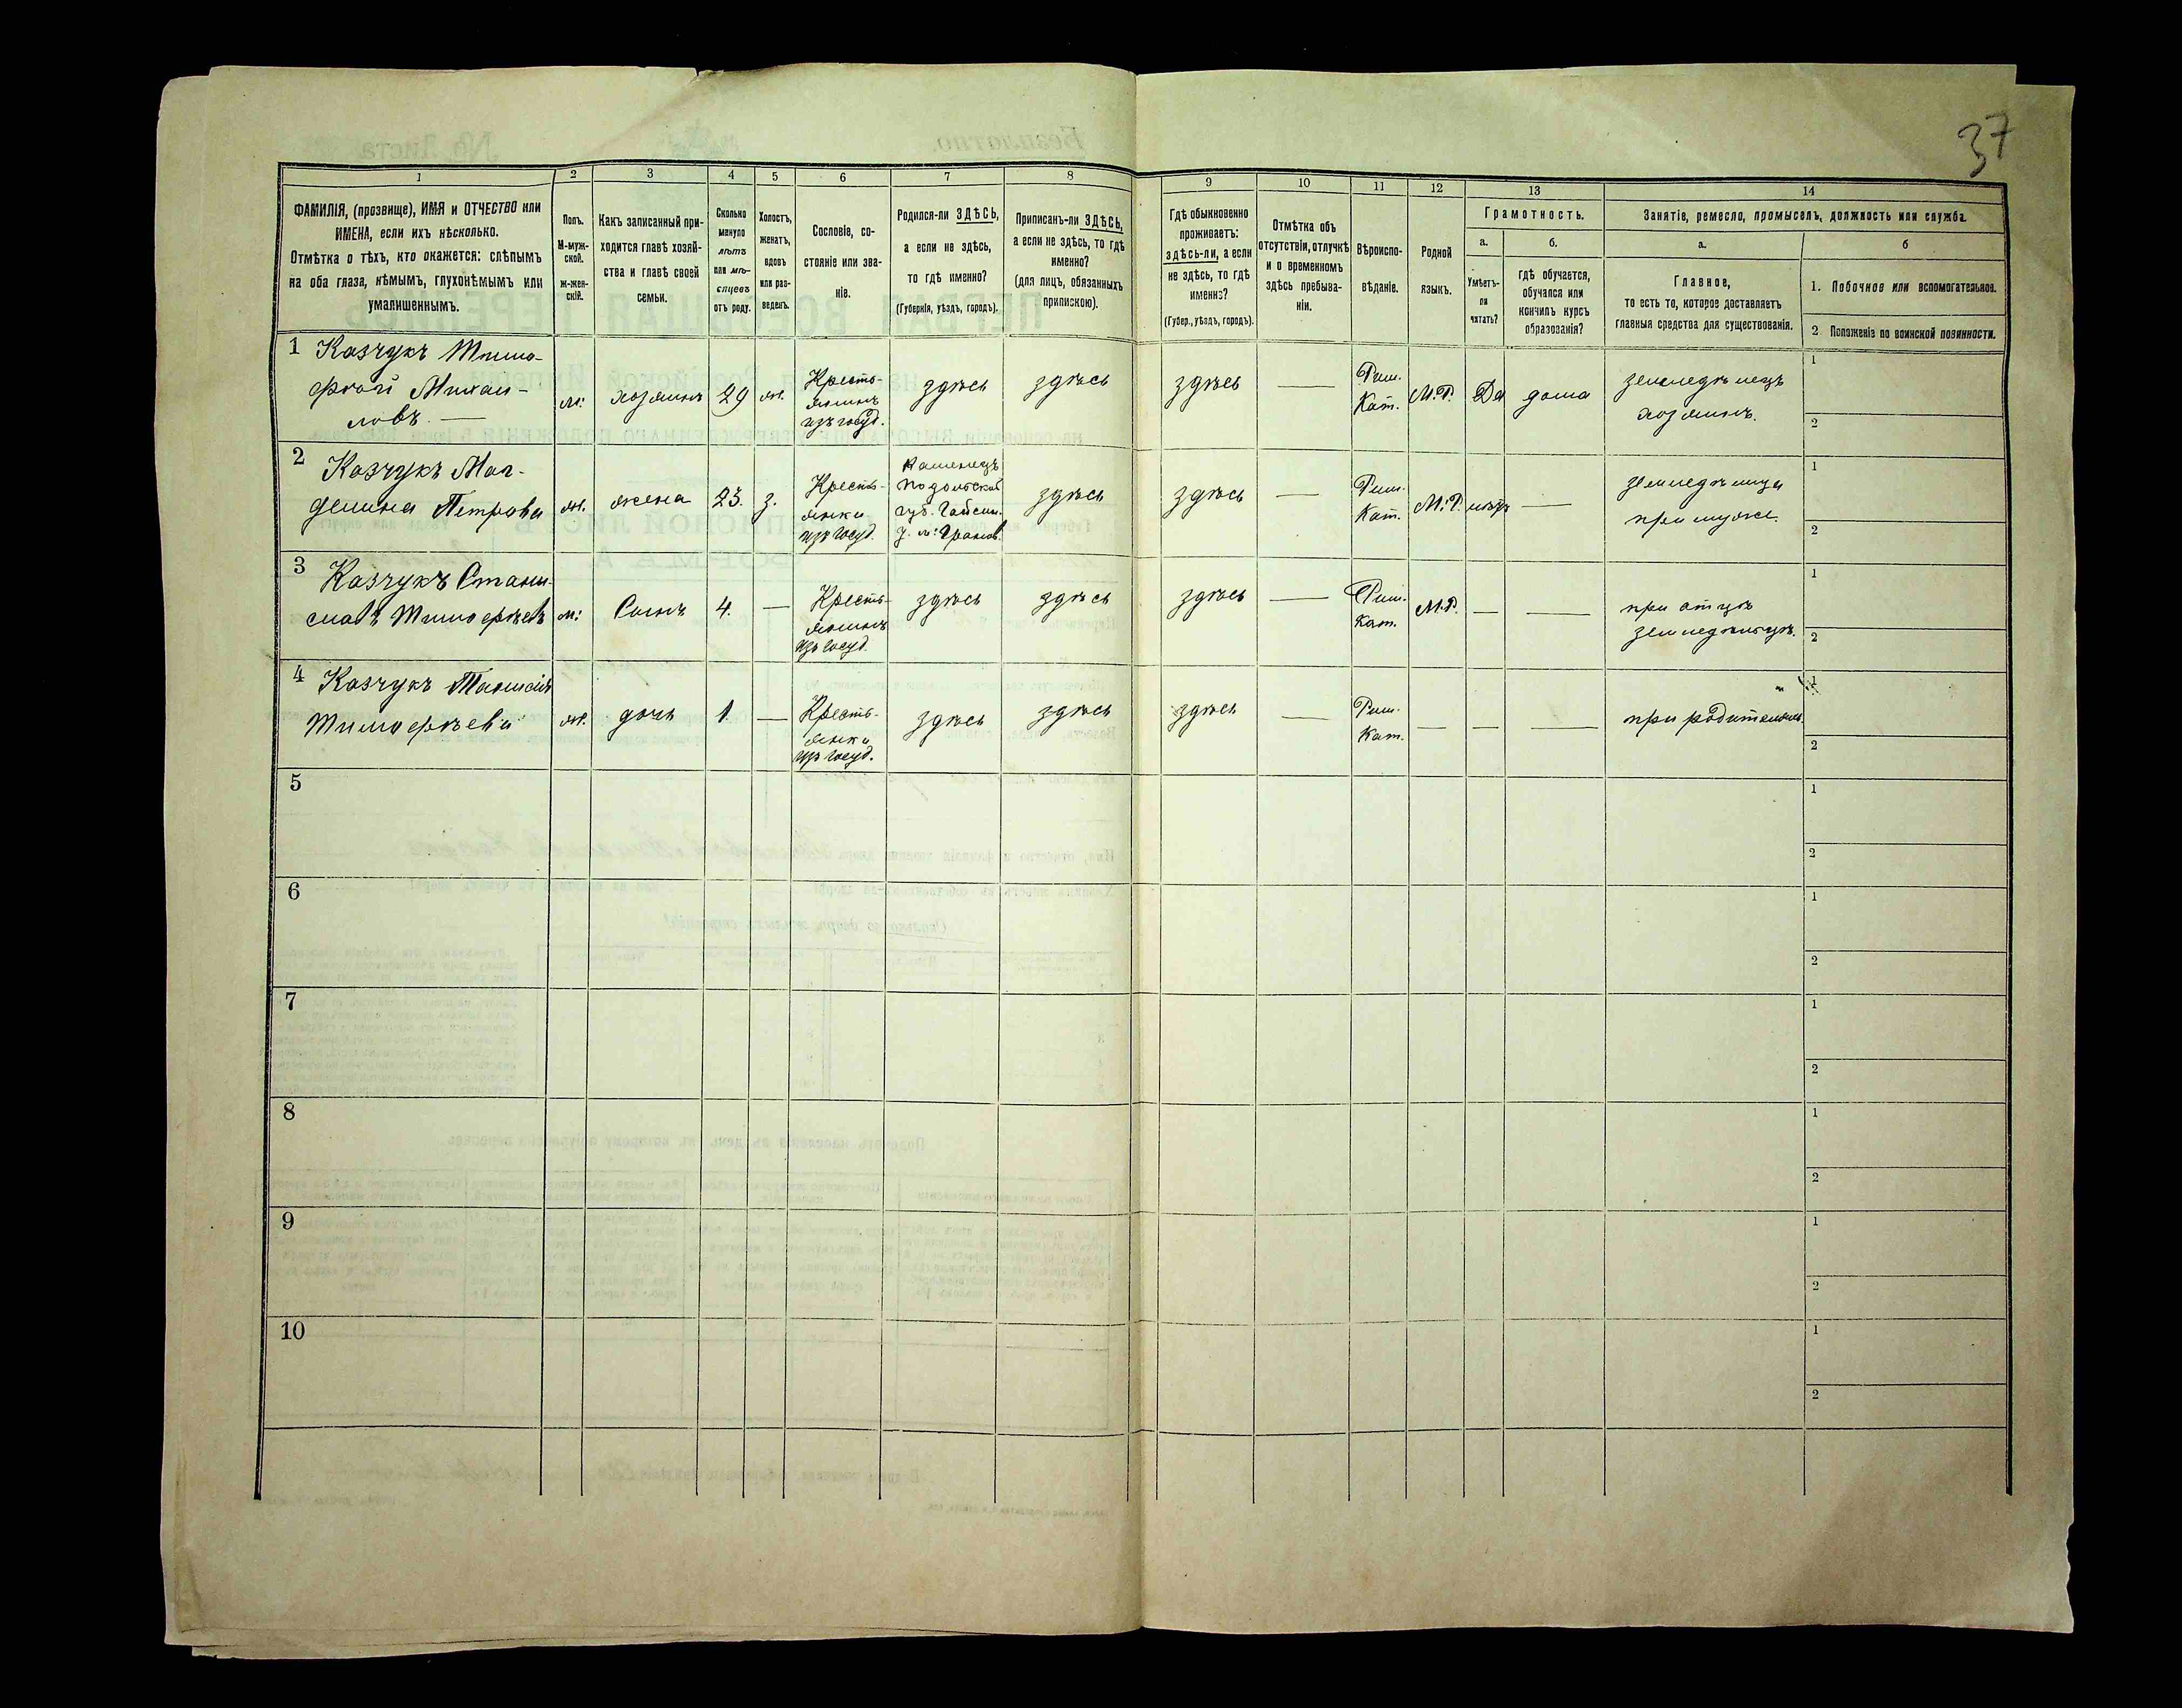 37
1
2
3
4
5
6
7
8
9
10
11
12
13
14
ФАМИЛІЯ, (прозвище), ИМЯ и ОТЧЕСТВО или
ИМЕНА, если ихъ нѣсколько.
Отмѣтка о тѣхъ, кто окажется: слѣпымъ
на оба глаза, нѣмымъ, глухонѣмымъ или
умалишеннымъ.
Полъ.
М-муж-
ской.
ж-жен-
скій.
Какъ записанный при-
ходится главѣ хозяй-
ства и главѣ своей
семьи.
Сколько
минуло
лѣтъ
или мѣ-
сяцевъ
отъ роду.
Холостъ,
женатъ,
вдовъ
или раз-
веденъ.
Сословіе, со-
стояніе или зва-
ніе.
Родился-ли ЗДѢСЬ,
а если не здѣсь,
то гдѣ именно?
(Губернія, уѣздъ, городъ).
Приписанъ-ли ЗДѢСЬ,
а если не здѣсь, то гдѣ
именно?
(для лицъ, обязанныхъ
припискою).
Гдѣ обыкновенно
проживаетъ:
здѣсь-ли, а если
не здѣсь, то гдѣ
именно?
(Губер., уѣздъ, городъ).
Отмѣтка объ
отсутствіи, отлучкѣ
и о временномъ
здѣсь пребыва-
ніи.
Вѣроиспо-
вѣданіе.
Родной
языкъ.
Грамотность.
а.
б.
Умѣетъ-
ли
читать?
гдѣ обучается,
обучался или
кончилъ курсъ
образованія?
Занятіе, ремесло, промыселъ, должность или служба.
а.
б
Главное,
то есть то, которое доставляетъ
главныя средства для существованія.
1. Побочное или вспомогательное.
2 Положеніе по воинской повинности.
1 Казчукъ Тимо-
фтой Михаи-
ловъ —
м:
хозяинъ
29
ж.
Кресть-
янинъ
изъ госуд.
здѣсь
здѣсь
здѣсь
—
Рим.
Кат.
М.Р.
Да
дома
земледѣлецъ
хозяинъ.
1
2
2 Казчукъ Маг-
делина Петрова
ж.
жена
23.
з.
Кресть-
янка
изъ госуд.
Каменецъ
Подольской
губ. Гайсин.
у. м: Гранов.
здѣсь
здѣсь
—
Рим.
Кат.
М.Р.
нѣтъ
—
земледѣлица
при мужѣ.
1
2
3 Казчукъ Стани-
славъ Тимофѣевъ
м:
Сынъ
4.
—
Кресть-
янинъ
изъ госуд.
здѣсь
здѣсь
здѣсь
—
Рим.
Кат.
М.Р.
—
—
при отцѣ
земледѣльцѣ.
1
2
4 Казчукъ
Тимофѣева
ж.
дочь
1.
—
Кресть-
янка
изъ госуд.
здѣсь
здѣсь
здѣсь
—
Рим.
Кат.
—
—
—
при родителяхъ
1
2
5
1
2
6
1
2
7
1
2
8
1
2
9
1
2
10
1
2